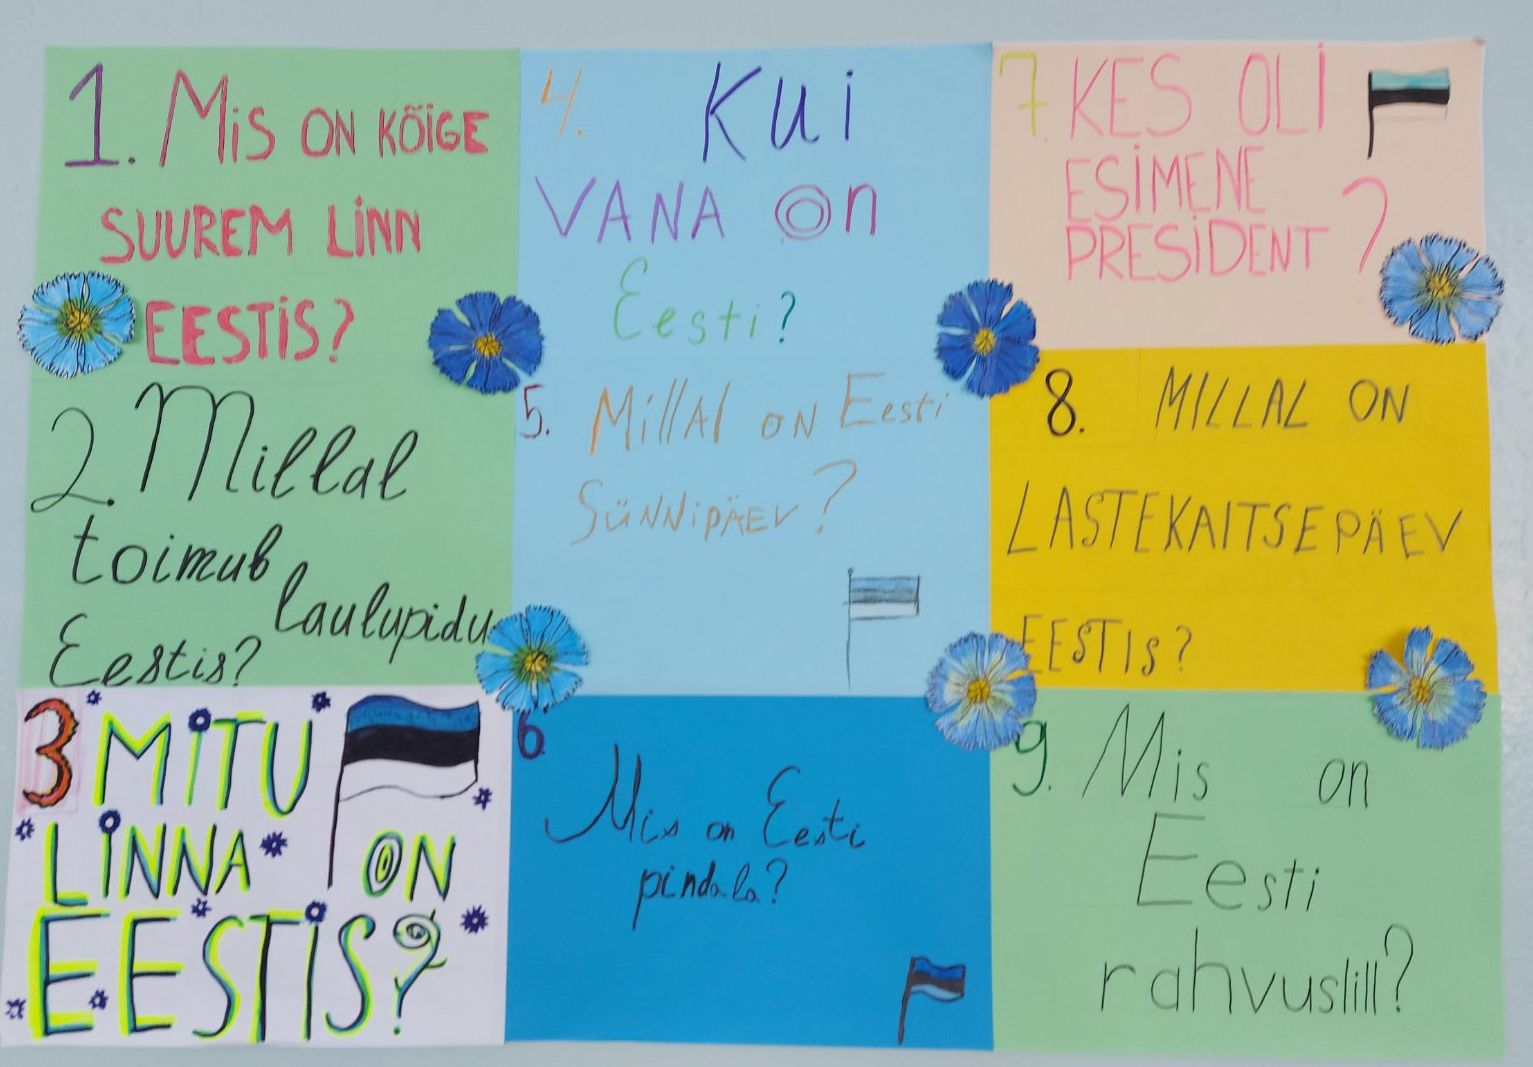 1. Mis ON KÕIGE
SUUREM LINN
EESTIS?
2. Millal
toimub
laulupidu
Eestis?
3 MITU
LINNA ON
EESTIS?
4. Kui
VANA on
Eesti?
5. Millal ON Eesti
SÜNNIPÄEV?
6.
Mis on Eesti
pindala?
7. KES OLI
ESIMENE
PRESIDENT?
8. MILLAL ON
LASTEKAITSEPÄEV
EESTIS?
9. Mis on
Eesti
rahvuslill?